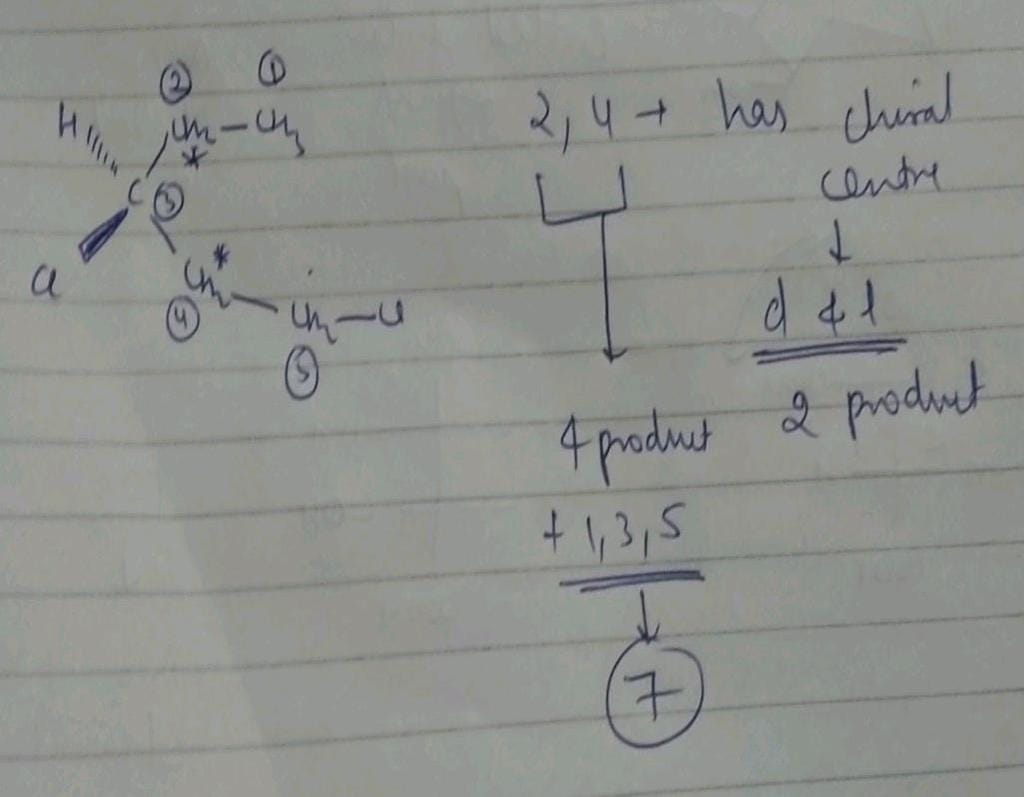 ② ①
H CH2 – CH3
*
C ③
Cl CH2 *
④ CH2 – Cl
⑤
2, 4 → has chiral
centre
↓
d & l
2 product
4 product
+ 1, 3, 5
↓
⑦